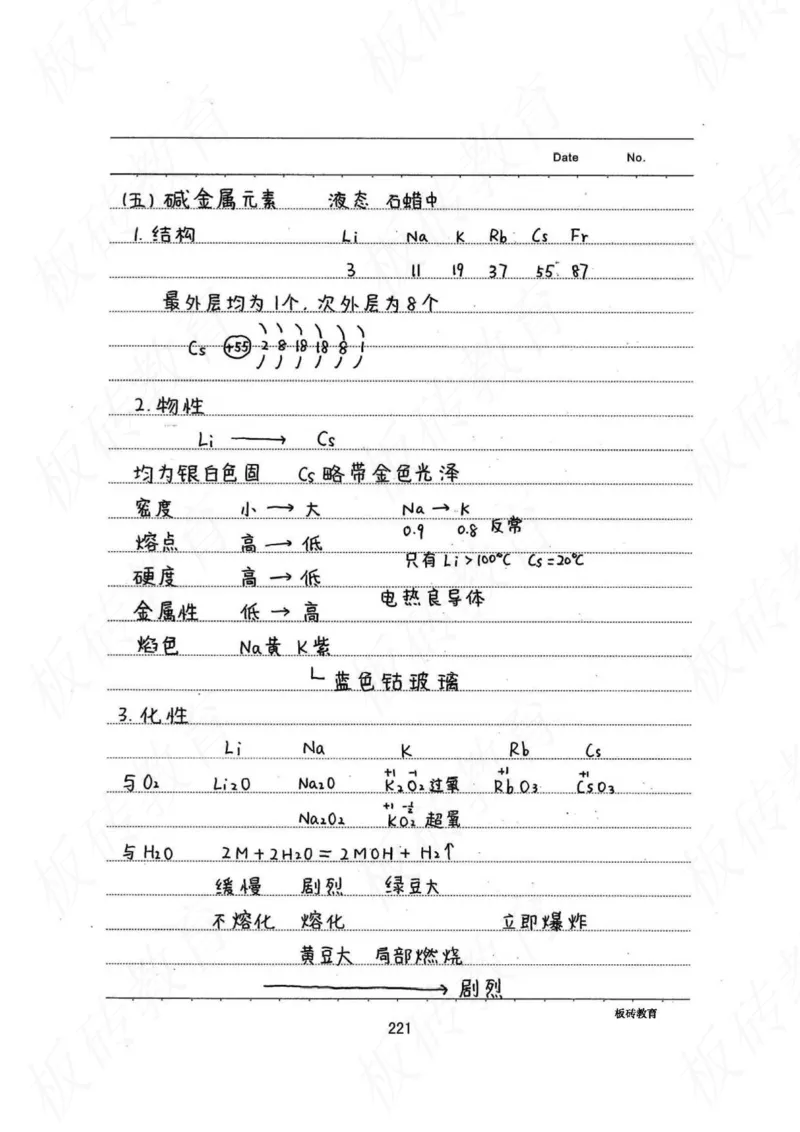 Date No.
(五)碱金属元素 液态 石蜡中
1.结构 Li Na K Rb Cs Fr
3 11 19 37 55 87
最外层均为1个,次外层为8个
Cs +55 2 8 18 18 8 1
2.物性
Li → Cs
均为银白色固 Cs略带金色光泽
密度 小→大 Na→K
0.9 0.8 反常
熔点 高→低
只有Li>100℃ Cs=20℃
硬度 高→低
电热良导体
金属性 低→高
焰色 Na黄 K紫
蓝色钴玻璃
3.化性
Li Na K Rb Cs
+1 -1 +1 +1
与O₂ Li₂O Na₂O K₂O₂过氧 RbO₃ CsO₃
+1 -½
Na₂O₂ KO₂ 超氧
与H₂O 2M+2H₂O=2MOH+H₂↑
缓慢 剧烈 绿豆大
不熔化 熔化 立即爆炸
黄豆大 局部燃烧
→ 剧烈
板砖教育
221
板砖教育